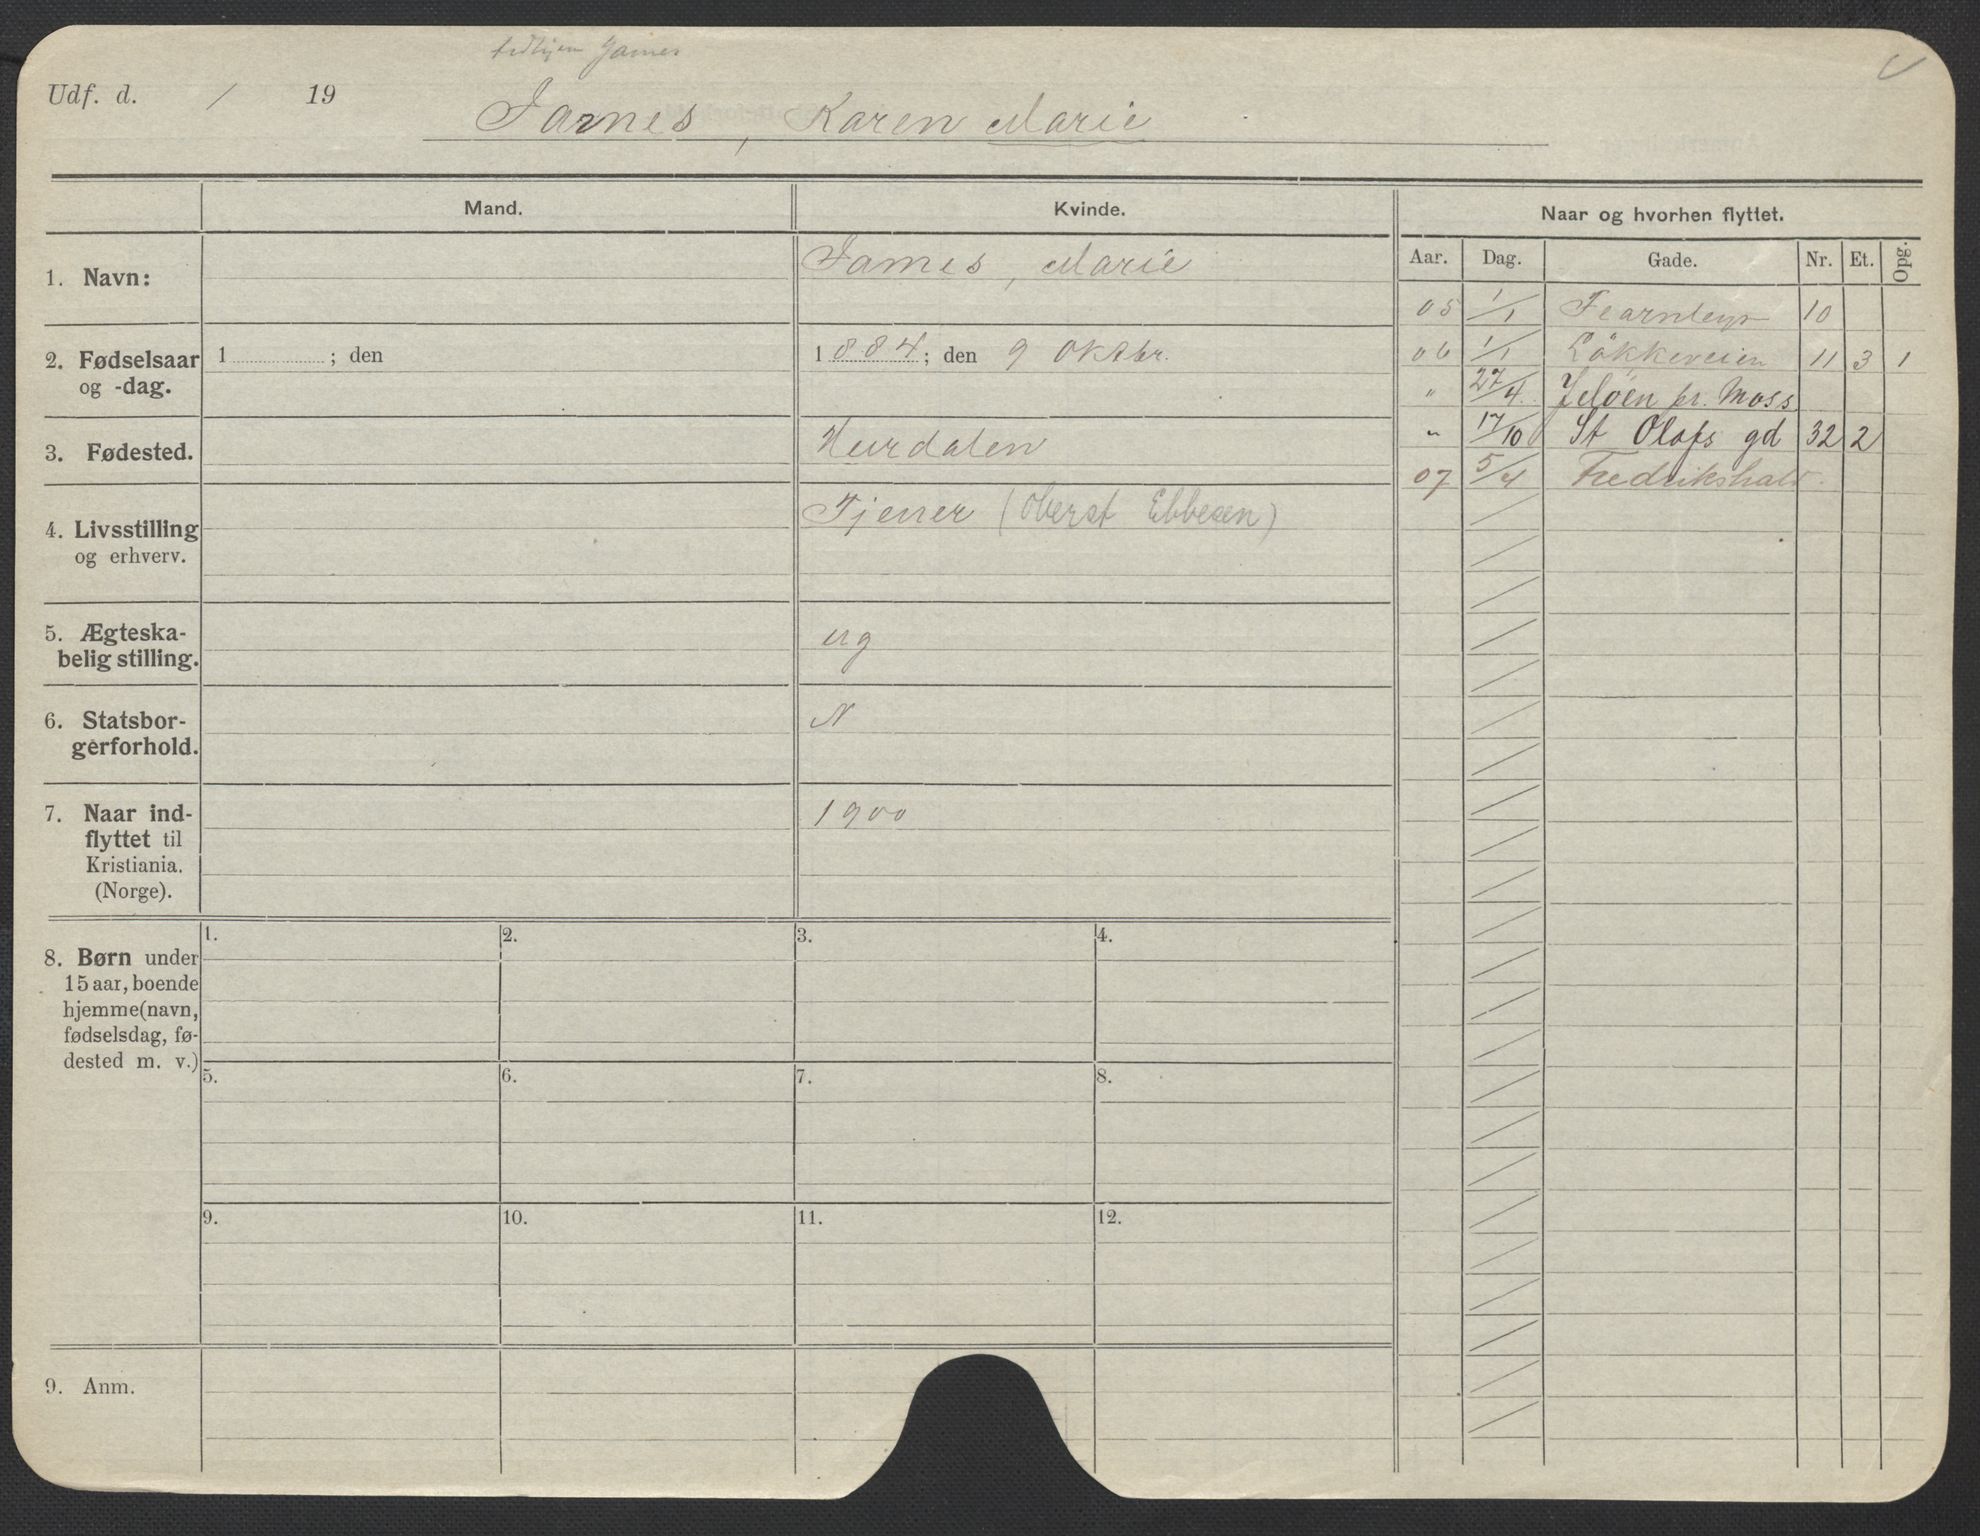 James
Udf. d. / 19
James, Karen Marie
Mand.
Kvinde.
Naar og hvorhen flyttet.
Aar. Dag. Gade. Nr. Et. Opg.
1. Navn:
James, Marie
2. Fødselsaar og -dag.
1 ; den
1 884 ; den 9 Oktbr.
3. Fødested.
Hurdalen
4. Livsstilling og erhverv.
Tjener (Oberst Ebbesen)
5. Ægteska-
belig stilling.
ug
6. Statsbor-
gerforhold.
N
7. Naar ind-
flyttet til
Kristiania.
(Norge).
1900
05 1/1 Fearnleys 10
06 1/1 Lökkeveien 11 3 1
" 27/4 Jelöen pr. Moss
" 17/10 St Olafs gd 32 2
07 5/4 Fredrikshald.
8. Børn under
15 aar, boende
hjemme (navn,
fødselsdag, fø-
dested m. v.)
1. 2. 3. 4.
5. 6. 7. 8.
9. 10. 11. 12.
9. Anm.